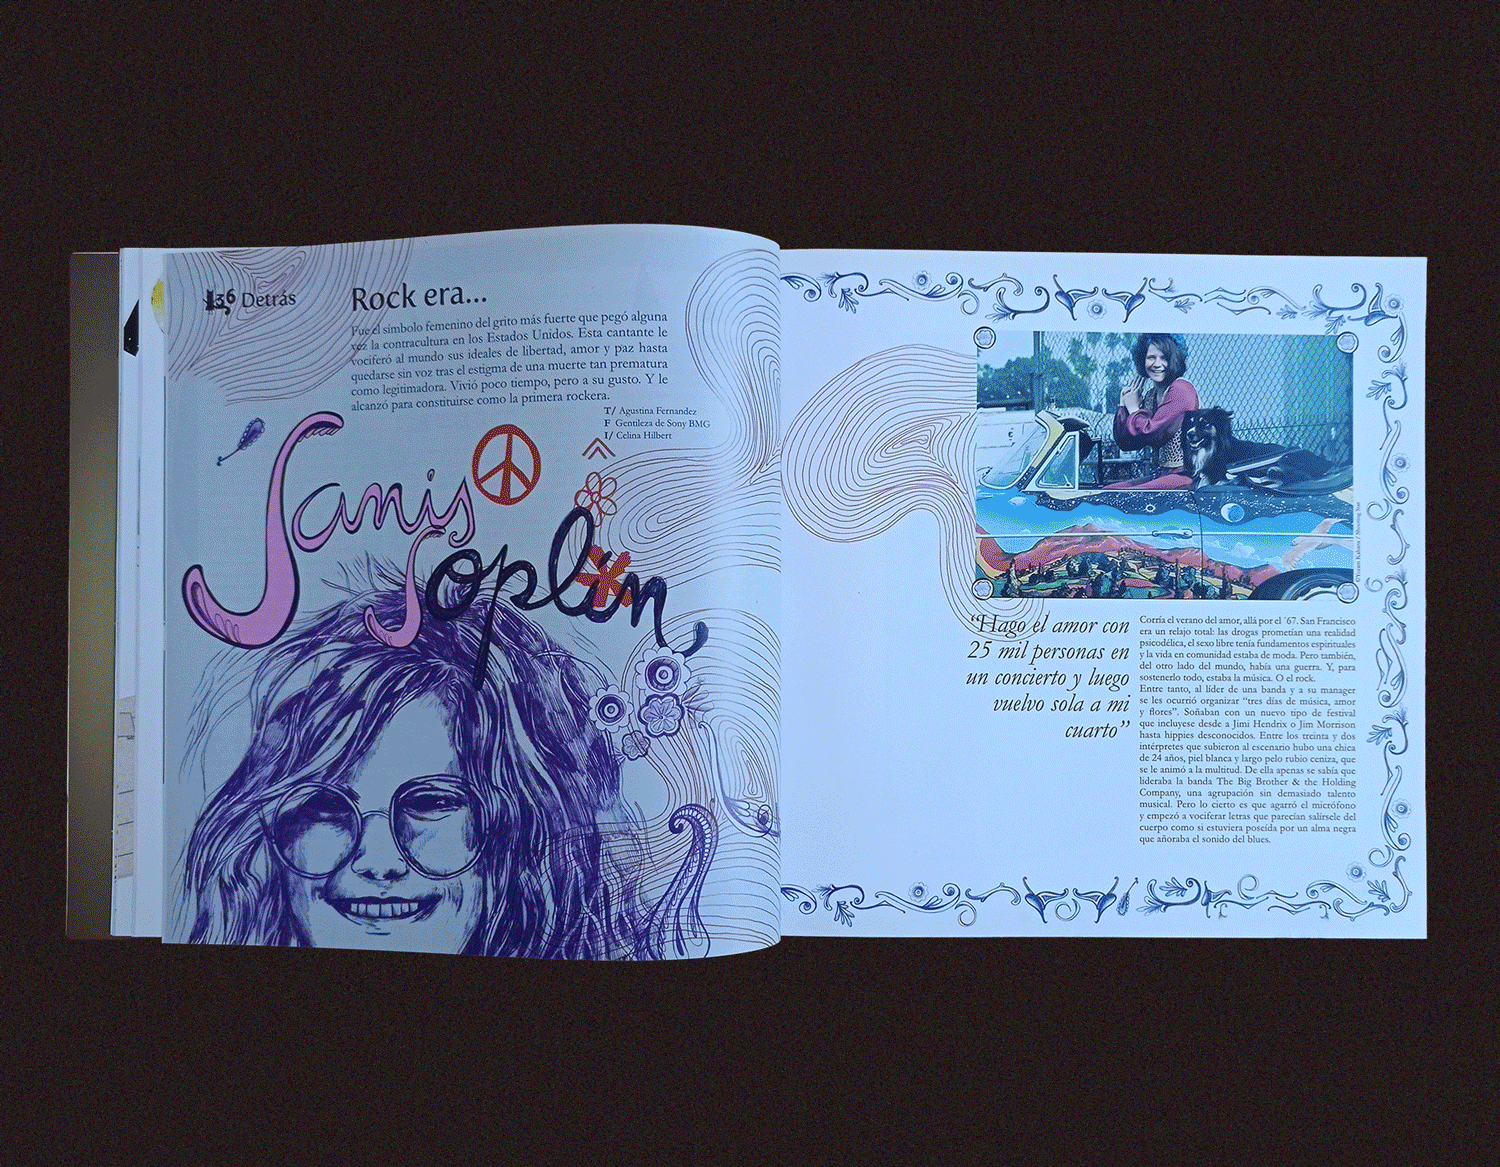 136 Detrás
Rock era...
Fue el símbolo femenino del grito más fuerte que pegó alguna
vez la contracultura en los Estados Unidos. Esta cantante le
vociferó al mundo sus ideales de libertad, amor y paz hasta
quedarse sin voz tras el estigma de una muerte tan prematura
como legitimadora. Vivió poco tiempo, pero a su gusto. Y le
alcanzó para constituirse como la primera rockera.
T/ Agustina Fernandez
F Gentileza de Sony BMG
I/ Celina Hilbert
Janis
Joplin,
“Hago el amor con
25 mil personas en
un concierto y luego
vuelvo sola a mi
cuarto”
Corría el verano del amor, allá por el ´67. San Francisco
era un relajo total: las drogas prometían una realidad
psicodélica, el sexo libre tenía fundamentos espirituales
y la vida en comunidad estaba de moda. Pero también,
del otro lado del mundo, había una guerra. Y, para
sostenerlo todo, estaba la música. O el rock.
Entre tanto, al líder de una banda y a su manager
se les ocurrió organizar “tres días de música, amor
y flores”. Soñaban con un nuevo tipo de festival
que incluyese desde a Jimi Hendrix o Jim Morrison
hasta hippies desconocidos. Entre los treinta y dos
intérpretes que subieron al escenario hubo una chica
de 24 años, piel blanca y largo pelo rubio ceniza, que
se le animó a la multitud. De ella apenas se sabía que
lideraba la banda The Big Brother & the Holding
Company, una agrupación sin demasiado talento
musical. Pero lo cierto es que agarró el micrófono
y empezó a vociferar letras que parecían salírsele del
cuerpo como si estuviera poseída por un alma negra
que añoraba el sonido del blues.